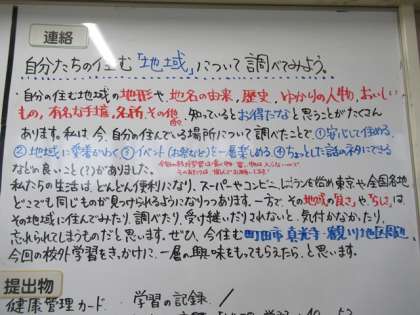 連絡
自分たちの住む「地域」について調べてみよう。
自分の住む地域の地形や、地名の由来、歴史、ゆかりの人物、おいしい
もの、有名な手描、名所、その他 知っているとお得だなと思うことがたくさん
あります。私は、今、自分の住んでいる場所について調べたことで ①安心して住める
②地域に愛着がわく ③イベント(お祭など)を一層楽しめる ④ちょっとした話のネタにできる
などの良いこと(?)がありました。
私たちの生活はどんどん便利になり、スーパーやコンビニ、レストランを始め東京や全国各地
どこでも同じものが見つけられるようになりつつあります。一方で、その地域の"良さ"や、"らしさ"は、
その地域に住んでみたり、調べたり、受け継いだりされないと、気付かなかったり、
忘れられてしまうものだと思います。ぜひ、今住む町田市真光寺・鶴川地区周辺、
今回の校外学習をきっかけに、一層の興味をもってもらえたら、と思います。
提出物
健康管理カード 学習の記録